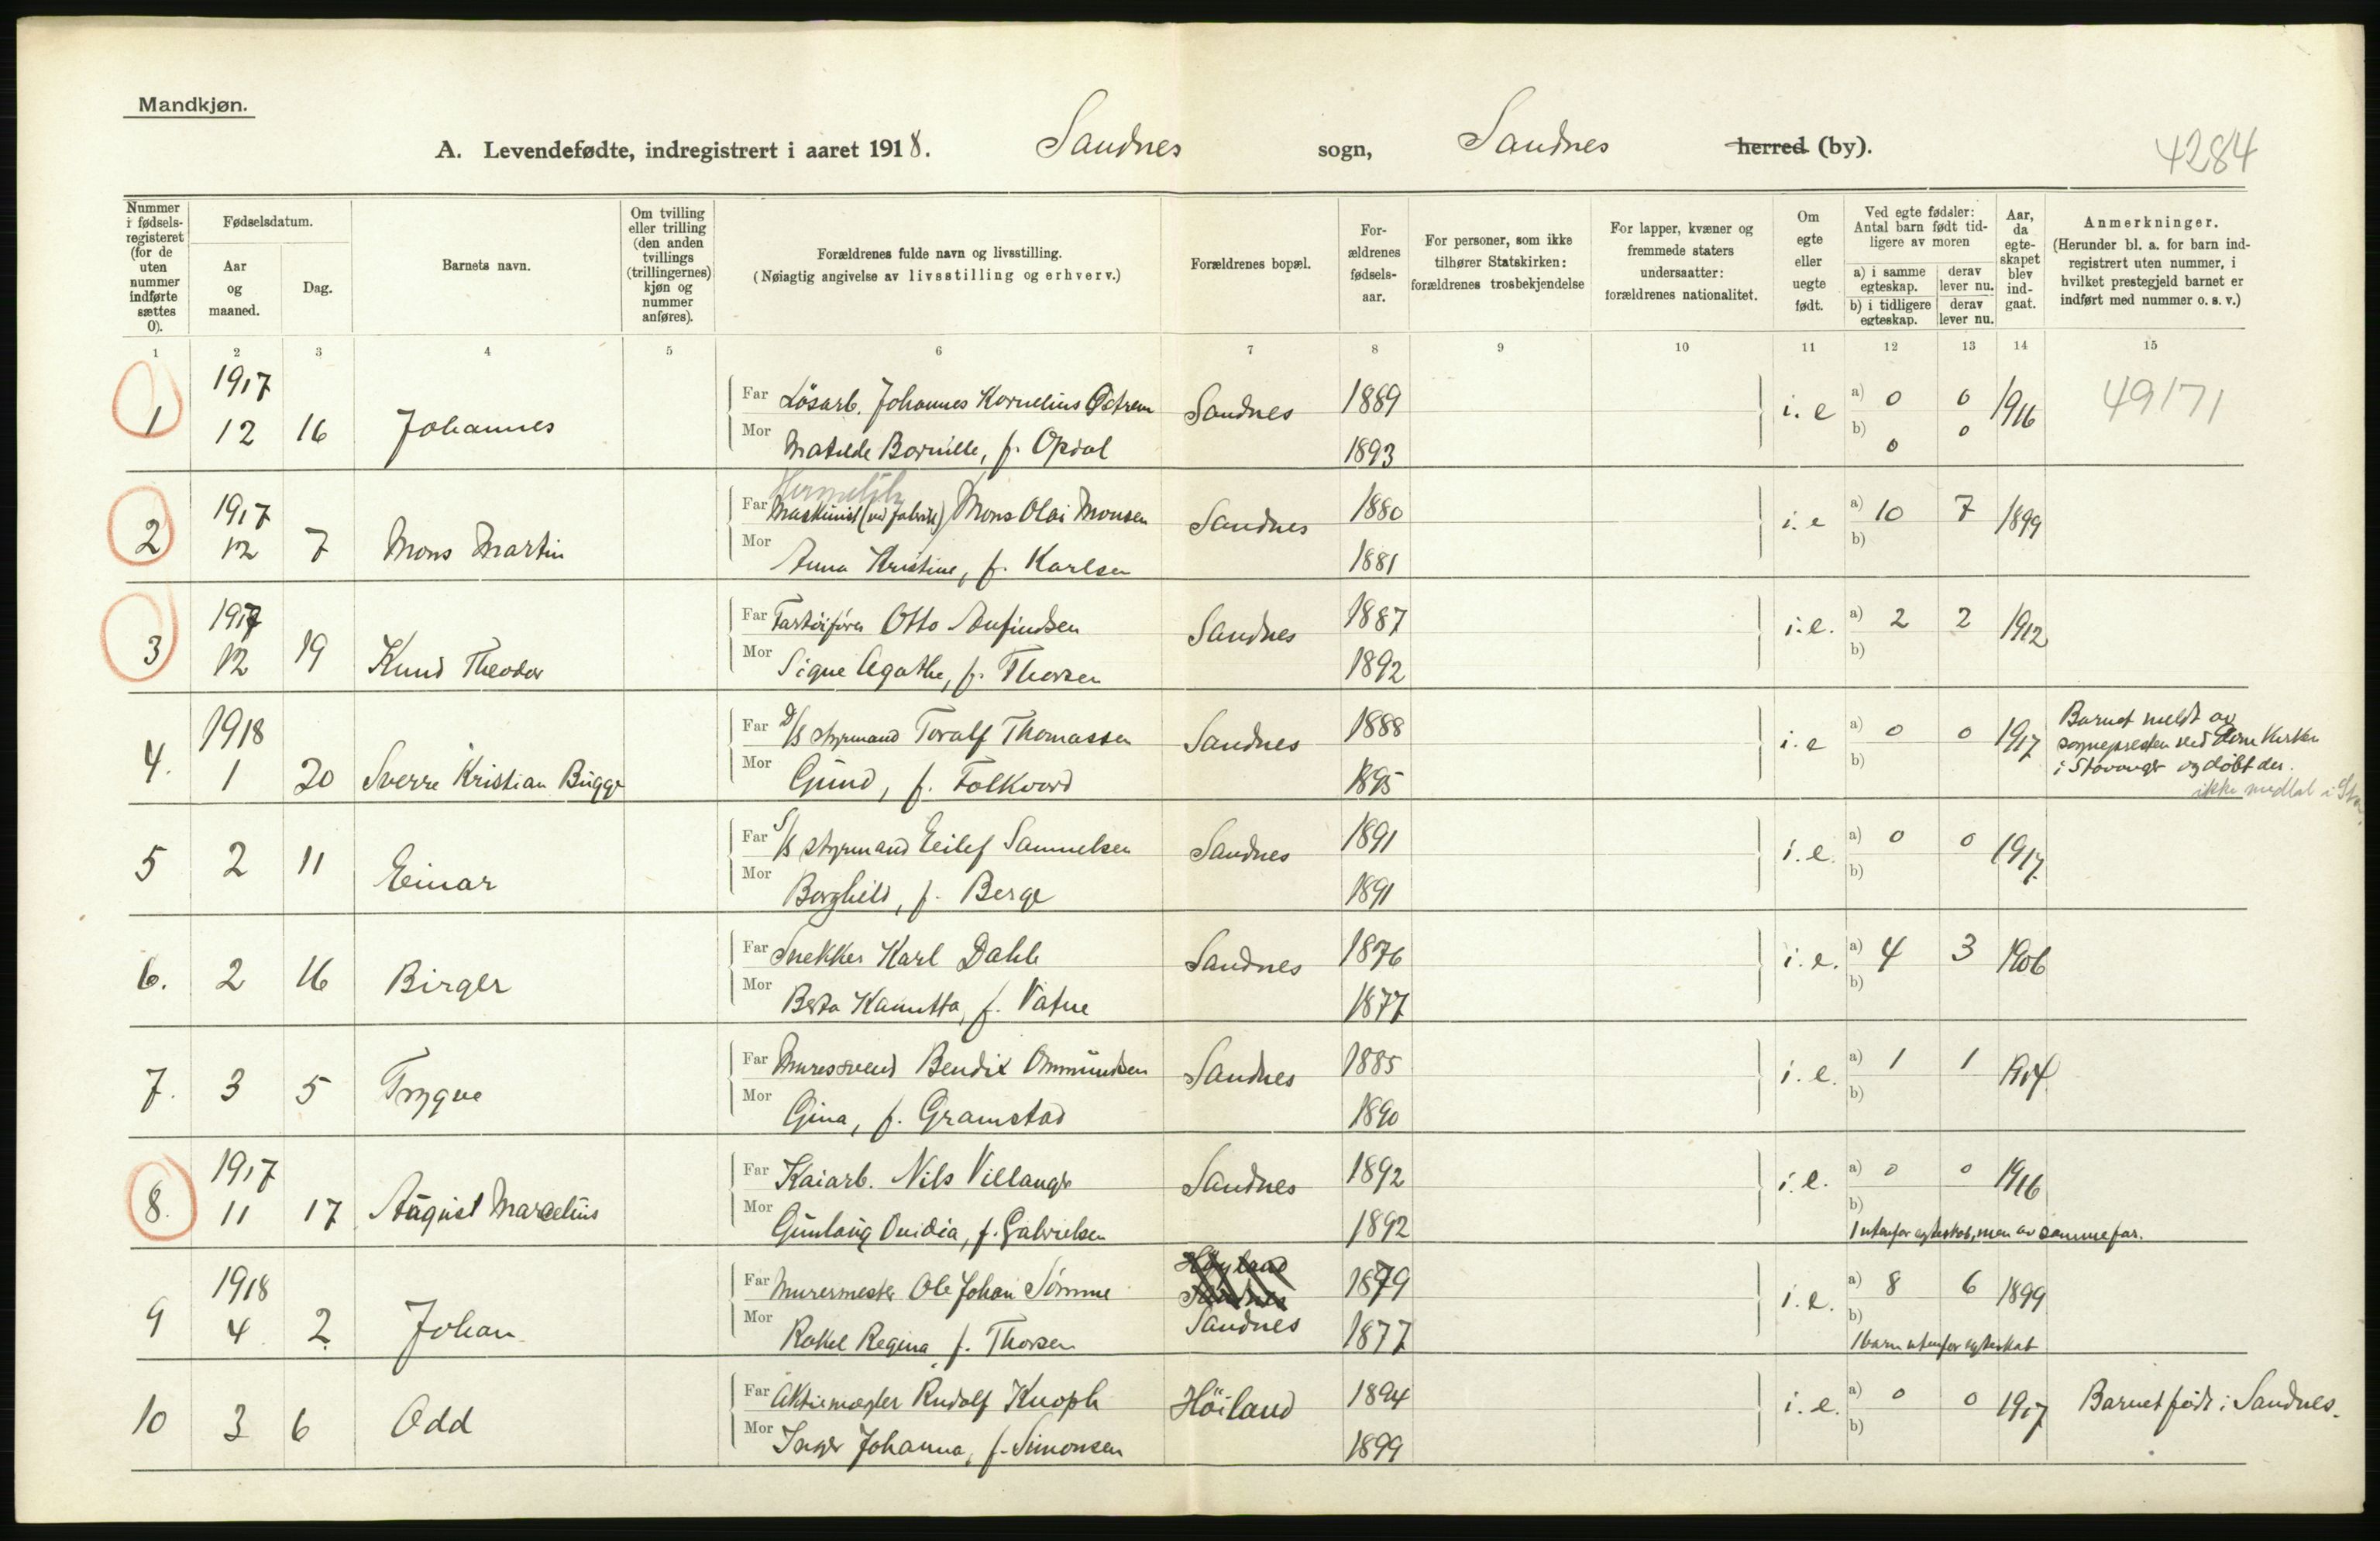 Mandkjøn.
A. Levendefødte, indregistrert i aaret 1918. Sandnes sogn, Sandnes herred (by). 4284
Nummer i fødsels-registeret (for de uten nummer indførte sættes 0).
Fødselsdatum.
Aar og maaned.
Dag.
Barnets navn.
Om tvilling eller trilling (den anden tvillings (trillingernes) kjøn og nummer anføres).
Forældrenes fulde navn og livsstilling.
(Nøiagtig angivelse av livsstilling og erhverv.)
Forældrenes bopæl.
For-ældrenes fødsels-aar.
For personer, som ikke tilhører Statskirken: forældrenes trosbekjendelse
For lapper, kvæner og fremmede staters undersaatter: forældrenes nationalitet.
Om egte eller uegte født.
Ved egte fødsler: Antal barn født tid-ligere av moren
a) i samme egteskap. derav lever nu.
b) i tidligere egteskap. derav lever nu.
Aar, da egte-skapet blev ind-gaat.
Anmerkninger.
(Herunder bl. a. for barn ind-registrert uten nummer, i hvilket prestegjeld barnet er indført med nummer o. s. v.)
1 2 3 4 5 6 7 8 9 10 11 12 13 14 15
1 1917 12 16 Johannes Far Løsarb. Johannes Kornelius Østrem Sandnes 1889 i. e a) 0 0 1916 49171
Mor Matilde Bornille, f. Opdal 1893 b) 0 0
Hermetikk
2 1917 12 7 Mons Martin Far Maskinist (ved fabrik) Mons Olai Monsen Sandnes 1880 i. e a) 10 7 1899
Mor Anna Kristine, f. Karlsen 1881 b)
3 1917 12 19 Knud Theodor Far Fartøifører Otto Anfindsen Sandnes 1887 i. e. a) 2 2 1912
Mor Signe Agathe, f. Thorsen 1892 b)
4. 1918 1 20 Sverre Kristian Bügge Far D/S styrmand Toralf Thomassen Sandnes 1888 i. e a) 0 0 1917 Barnet meldt av
sognepresten ved Kirke
i Stavanger og døbt der.
ikke medtal i
Mor Gund, f. Folkvord 1895 b)
5 2 11 Einar Far S/S styrmand Eilef Samuelsen Sandnes 1891 i. e. a) 0 0 1917
Mor Borghild, f. Berge 1891 b)
6. 2 16 Birger Far Snekker Karl Dahle Sandnes 1876 i. e. a) 4 3 1906
Mor Berta Kanutta, f. Vatne 1877 b)
7. 3 5 Trygve Far Mursvend Bendix Ommundsen Sandnes 1885 i. e. a) 1 1 1914
Mor Gina, f. Gramstad 1890 b)
8. 1917 11 17 August Marcelius Far Kaiarb. Nils Villanger Sandnes 1892 i. e. a) 0 0 1916
Mor Gunlaug Ovidia, f. Gabrielsen 1892 b)
1 utenfor egteskab, men av samme far.
9 1918 4 2 Johan Far Murermester Ole Johan Sømme Høyland Sandnes 1879 i. e. a) 8 6 1899
Mor Rakel Regina f. Thorsen Sandnes 1877 b)
1 barn utenfor egteskab
10 3 6 Odd Far Aktiemægler Rudolf Knoph Høiland 1894 i. e. a) 0 0 1917 Barnet født i Sandnes.
Mor Inger Johanna, f. Simonsen 1899 b)